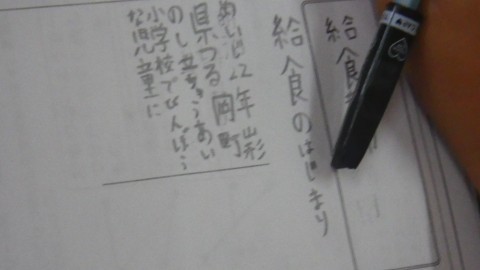 給食
給食のはじまり
めいじ22年山形
県つる岡町
のし立ちゅうあい
小学校でびんぼう
な児童に